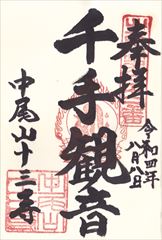 奉拝
令和四年
八月八日
千手観音
中尾山十三寺